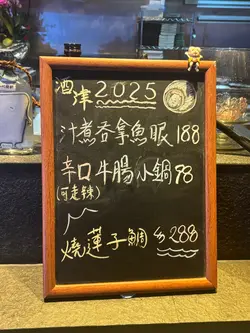 酒津2025
汁煮吞拿魚眼188
辛口牛腸小鍋98
(可走辣)
燒蓮子鯛 $288